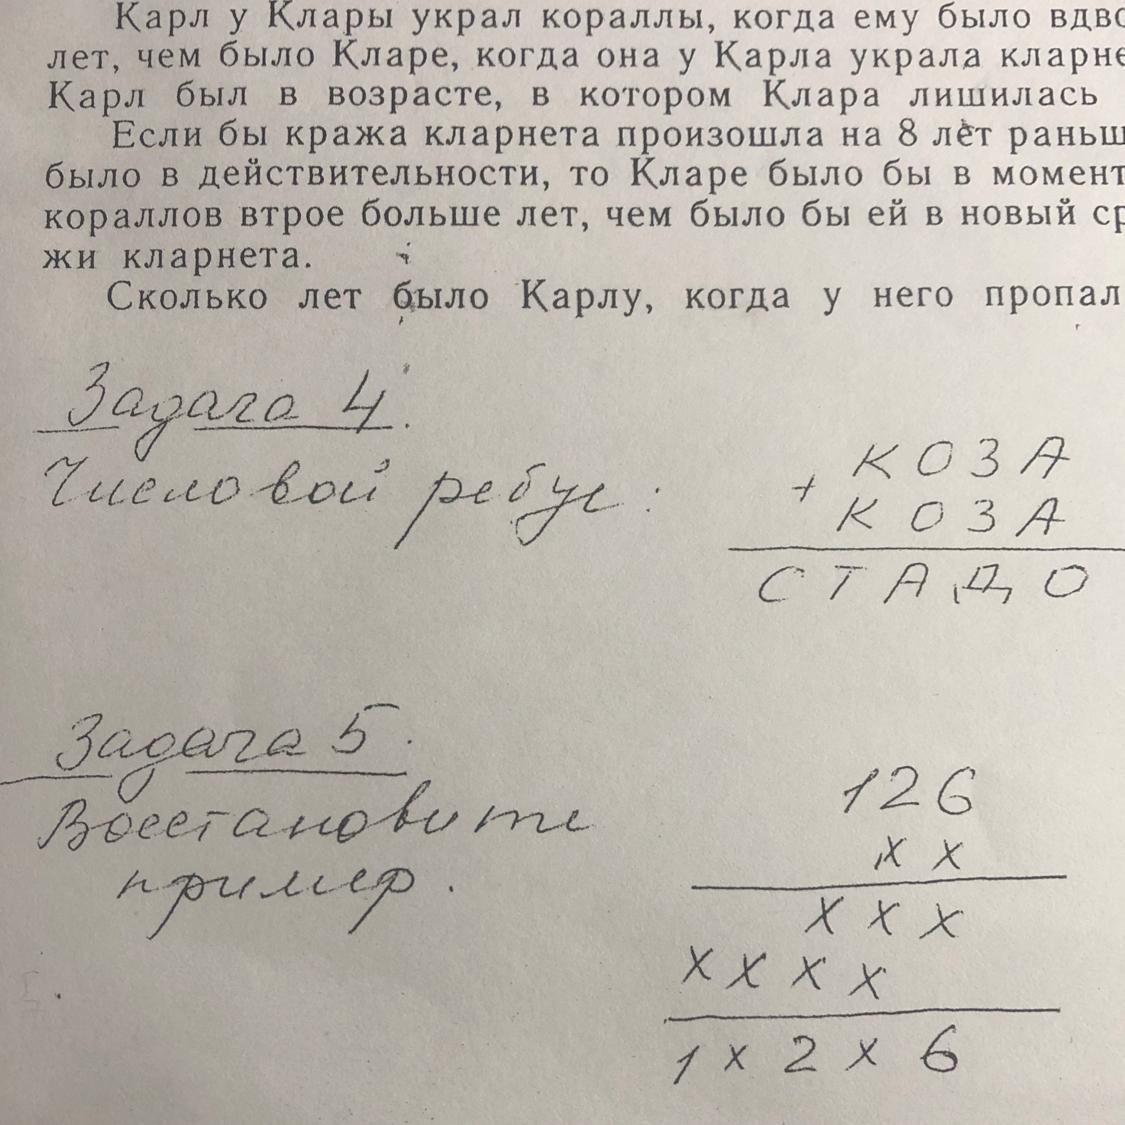 Карл у Клары украл кораллы, когда ему было
лет, чем было Кларе, когда она у Карла украла
Карл был в возрасте, в котором Клара лишилась
Если бы кража кларнета произошла на 8 лет
было в действительности, то Кларе было бы в
кораллов втрое больше лет, чем было бы ей в новый
жи кларнета.
Сколько лет было Карлу, когда у него
Задача 4.
Числовой ребус:
+ КОЗА
КОЗА
СТАДО
Задача 5.
Восстановите
пример.
126
х х
х х х
х х х х
1 х 2 х 6